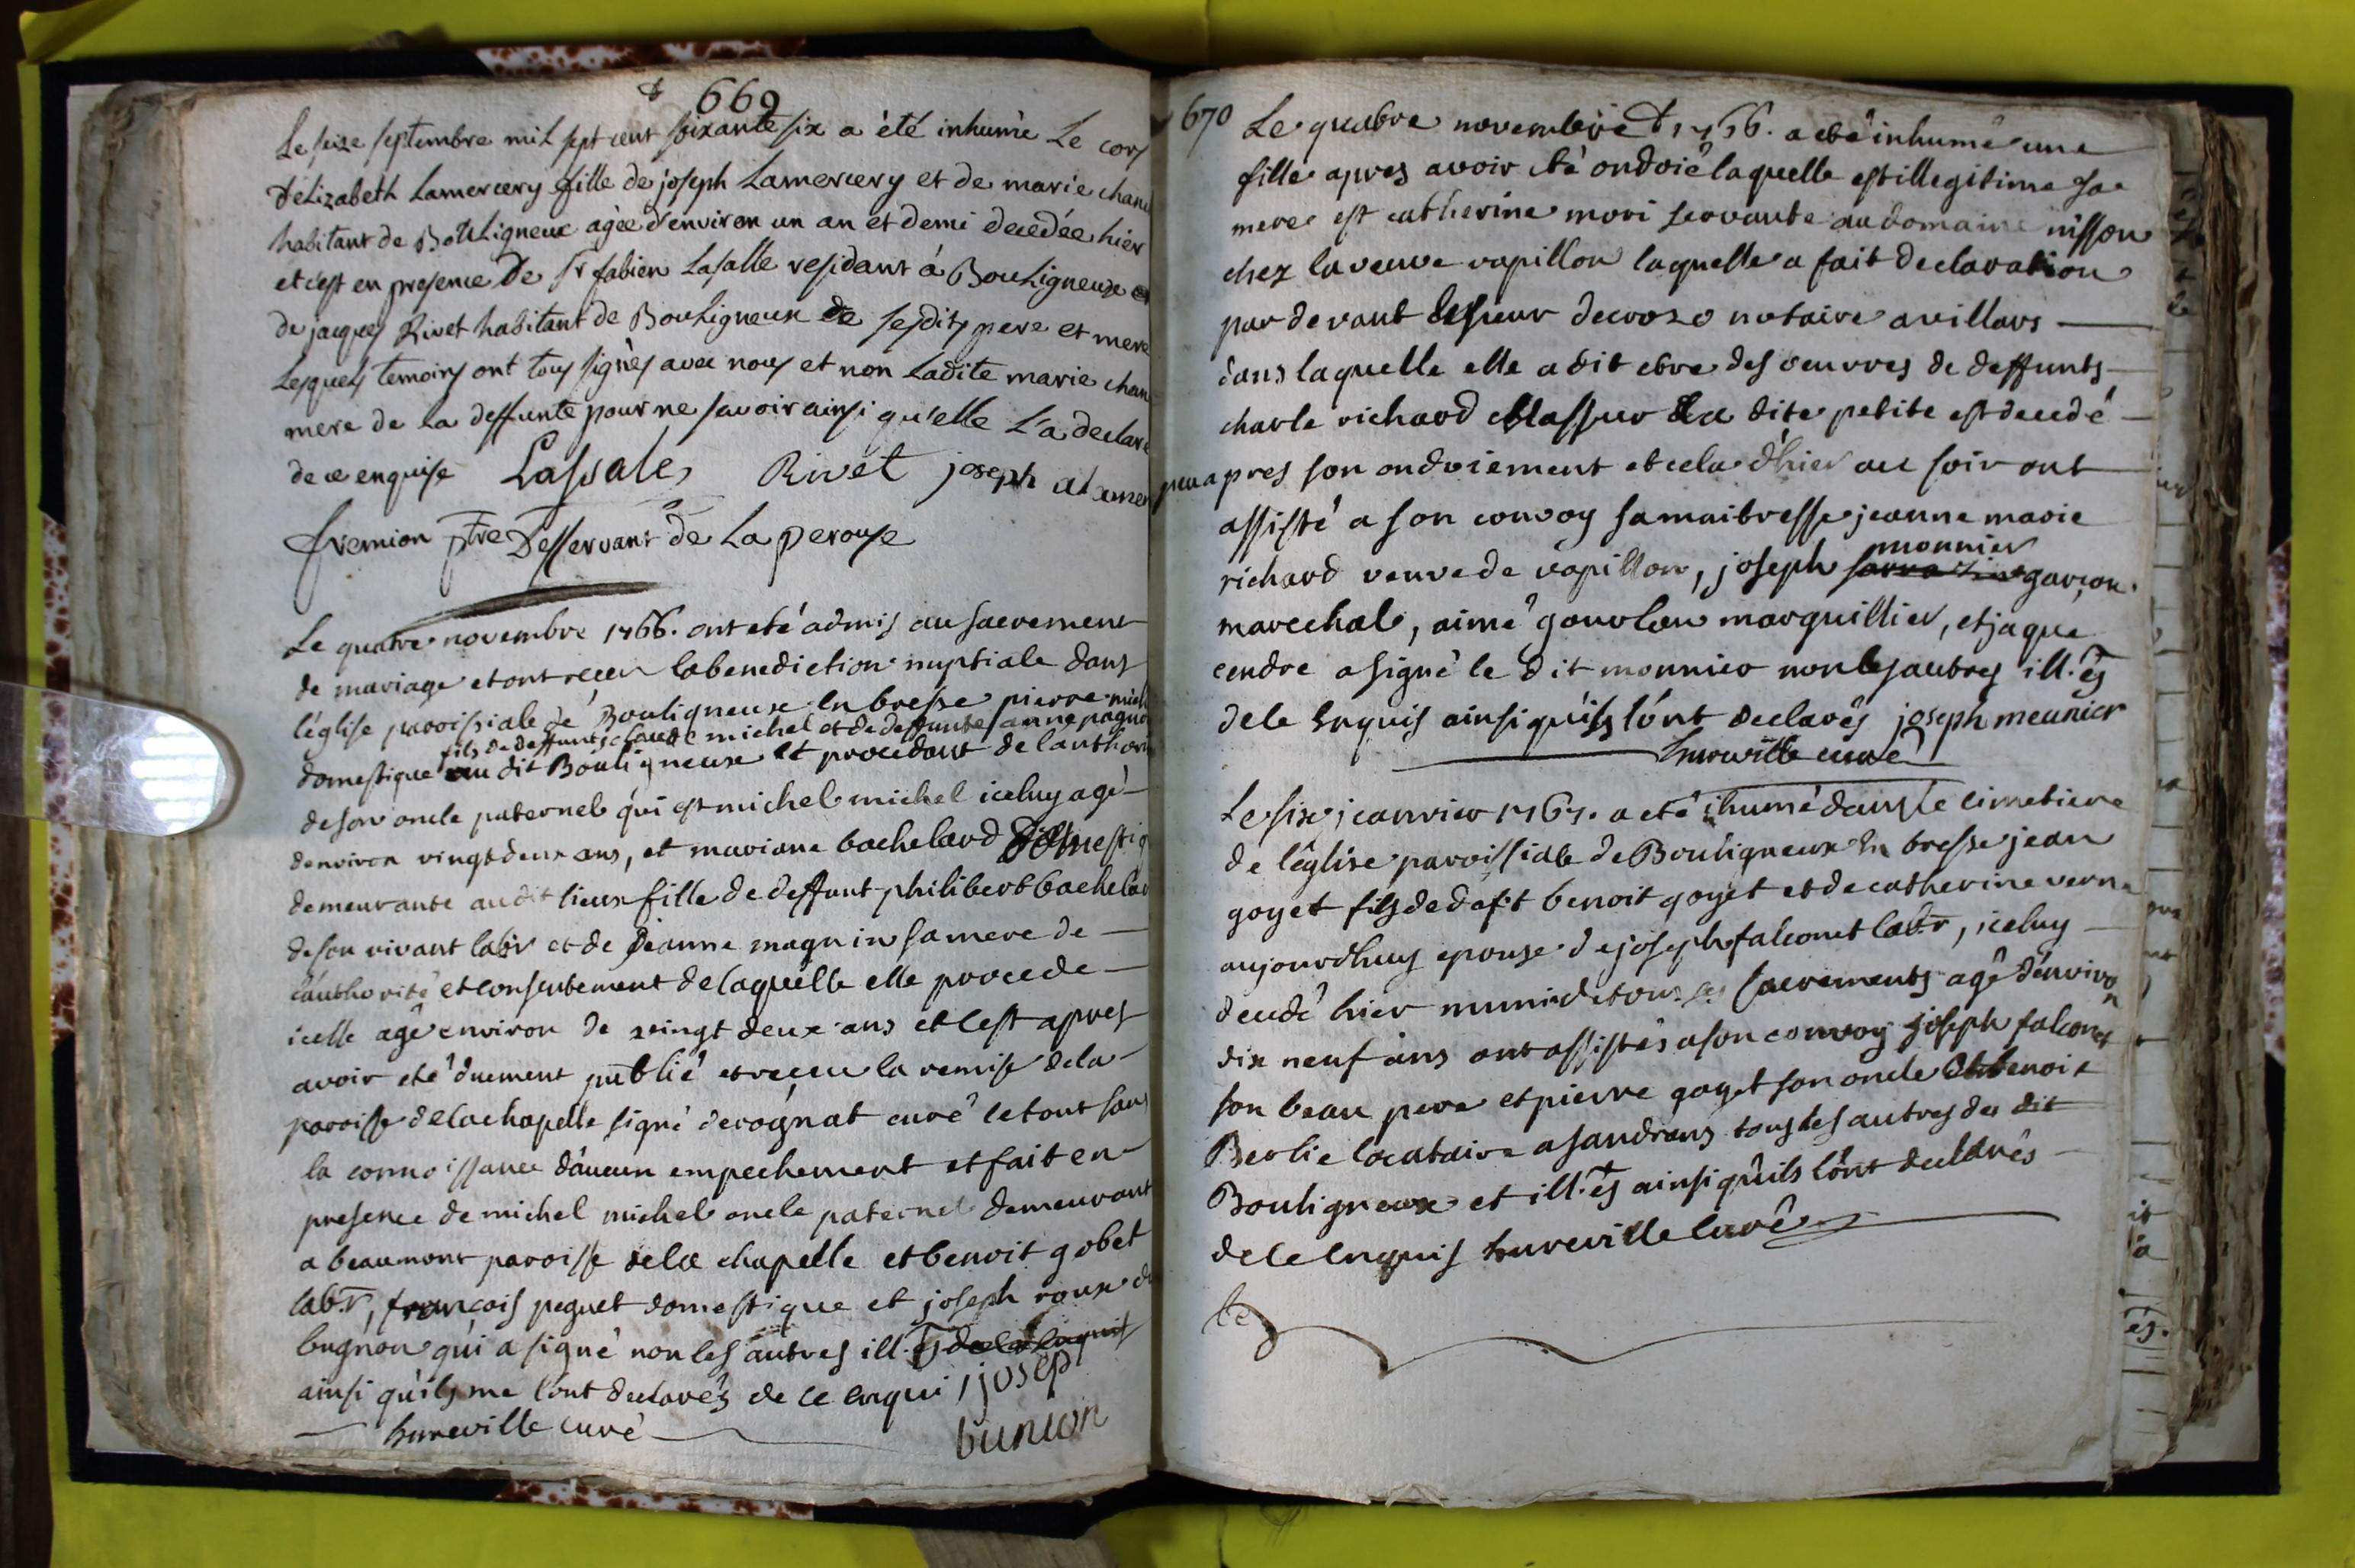 669
Le seize septembre mil sept cent soixante six a été inhumée Le cors
d'Elizabeth Lamercery fille de joseph Lamercery et de marie chan
habitant de Bouligneux agée d'environ un an et demi decedée hier
et c'est en presence de Sr fabien Lasalle residant à Bouligneux
de jacques Rivet habitant de Bouligneux de sesdits pere et mere
Lesquels temoins ont tous signès avec nous et non Ladite marie chan
mere de la deffunte pour ne savoir ainsi qu'elle L'a declaré
de ce enquise Lassale Rivet joseph
fremion ptre Desservant de La perouse
Le quatre novembre 1766. ont eté admis au sacrement
de mariage et ont receu la benediction nuptiale dans
l'église paroissiale de Bouligneux en bresse pierre mich
fils de deffunts claude michel et de deffunte anne
domestique au dit Bouligneux et procedant de l'authori
de son oncle paternel qui est michel michel iceluy agé
d'environ vingt deux ans, et mariane bachelard domestiq
demeurante audit lieux fille de deffunt philibert bachelar
de son vivant labr et de jeanne magnin sa mere de
l'authorité et consentement de laquelle elle procede
icelle agé environ de vingt deux ans et c'est apres
avoir eté duement publié et receu la remise de la
paroisse de la chapelle signé decrognat curé le tout sans
la connoissance d'aucun empechement et fait en
presence de michel michel oncle paternel demeurant
a beaumont paroisse de la chapelle et benoit gobet
lab.r, francois peguet domestique et joseph roux d
bugnon qui a signé non les autres ill.és de ce enquis
ainsi qu'ils me l'ont declarés de ce enqui josep
hureville curé bunion
670
Le quatre novembre 1766. a eté inhumé une
fille apres avoir eté ondoié laquelle est illegitime sa
mere est catherine mori servante au domaine nisson
chez la veuve vapillon laquelle a fait declaration
par devant le sieur decrozo notaire a villars
dans laquelle elle a dit etre des oeuvres de deffunts
charle richard la dite petite est decedé
peu apres son ondoiement et cela d'hier au soir ont
assisté a son convoy sa maitresse jeanne marie
monnier
richard veuve de vapillon, joseph garçon
marechal, aimé gourlon marguillier, et jaque
cendre a signé le dit monnier non les autres ill.és
de ce enquis ainsi qu'ils l'ont declarés joseph meunier
hureville curé
Le six jeanvier 1767. a eté ihumé dans le cimetiere
de l'église paroissiale de Bouligneux En bresse jean
goyet fils de def.t benoit goyet et de catherine verne
aujourdhuy epouse de joseph falconet lab.r, iceluy
decedé hier muni de tous ses sacrements agé d'environ
dix neuf ans ont assistés a son convoy joseph falconet
son beau pere et pierre goyet son oncle et benoit
Berlie locataire a sandrans tous les autres du dit
Bouligneux et ill.és ainsi qu'ils l'ont declarés
de ce enquis hureville curé
le